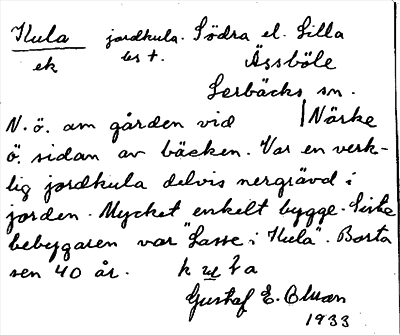 Kula jordkula. Södra el. Lilla
ek best. Ässböle
Lerbäcks sn.
N.ö. om gården vid | Närke
ö. sidan av bäcken. Var en verk-
lig jordkula delvis nergrävd i
jorden. Mycket enkelt bygge. Siste
bebyggaren var "Lasse i Kula". Borta
sen 40 år. kula
Gustaf E. Olsson
1933